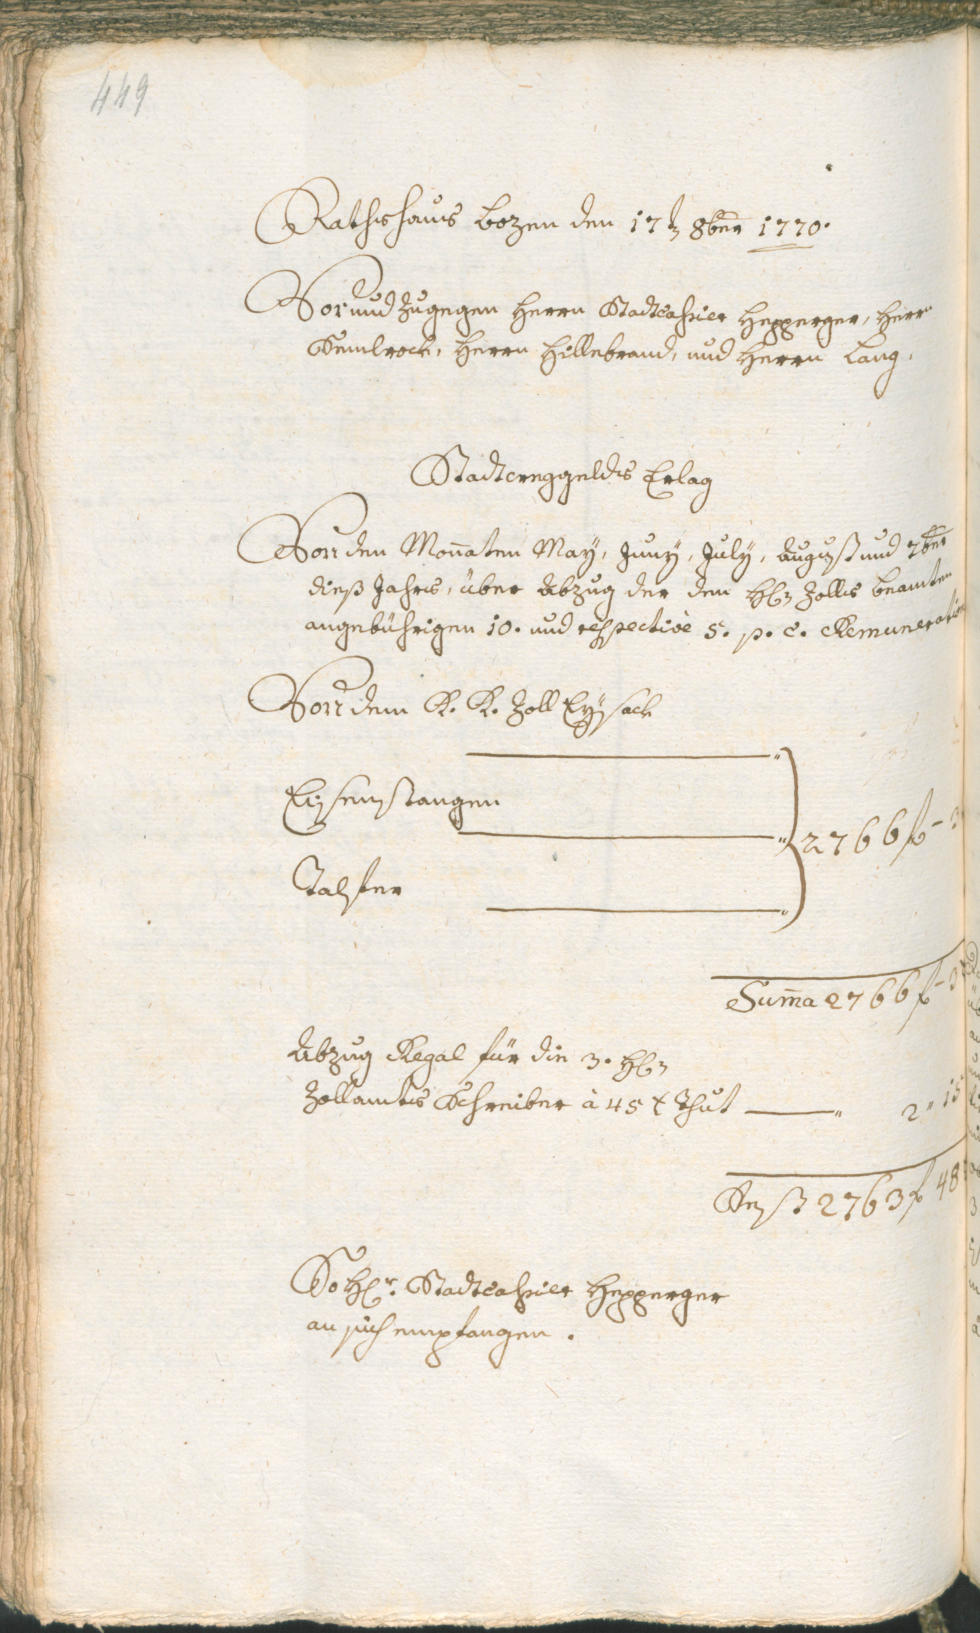 449
Rathshaus Bozen den 17t 8ber 1770.
Vor und Zugegen Herrn Stadtcassier Hepperger, Herr
Herrn Hillebrand, und Herrn Lang.
Stadtweggelds Erlag
Von den Monaten May, Juny, July, August und 7ber
dieß Jahrs, über Abzug der den Zolls beamten
angebührigen 10. und respective 5. p. c. Remuneration
Von dem K. K. Zoll Eysack
Eisenstangen
2766 f -
Talfer
Suma 2766 f -
Abzug Regal für die 3.
Zollamts Schreiber à 45 x thut 2 " 15
Rest 2763 f 48
So Hr. Stadtcassier Hepperger
an sich empfangen.